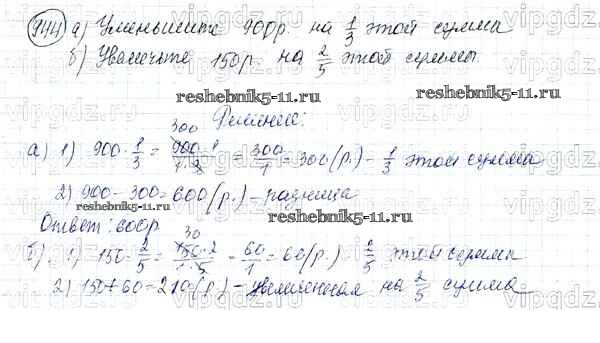 944 а) Уменьшите 900р. на 1/3 этой сумма
б) Увеличьте 150р. на 2/5 этой суммы.
reshebnik5-11.ru reshebnik5-11.ru
Решение:
а) 1) 900 · 1/3 = 900 · 1 / 1 · 3 = 300/1 = 300 (р.) – 1/3 этой сумма
300
2) 900 – 300 = 600 (р.) – разница
reshebnik5-11.ru reshebnik5-11.ru
Ответ: 600р.
б) 1) 150 · 2/5 = 150 · 2 / 1 · 5 = 60/1 = 60 (р.) 2/5 этой сумма
30
2) 150 + 60 = 210 (р.) – увеличенная на 2/5 сумма
vipgdz.ru